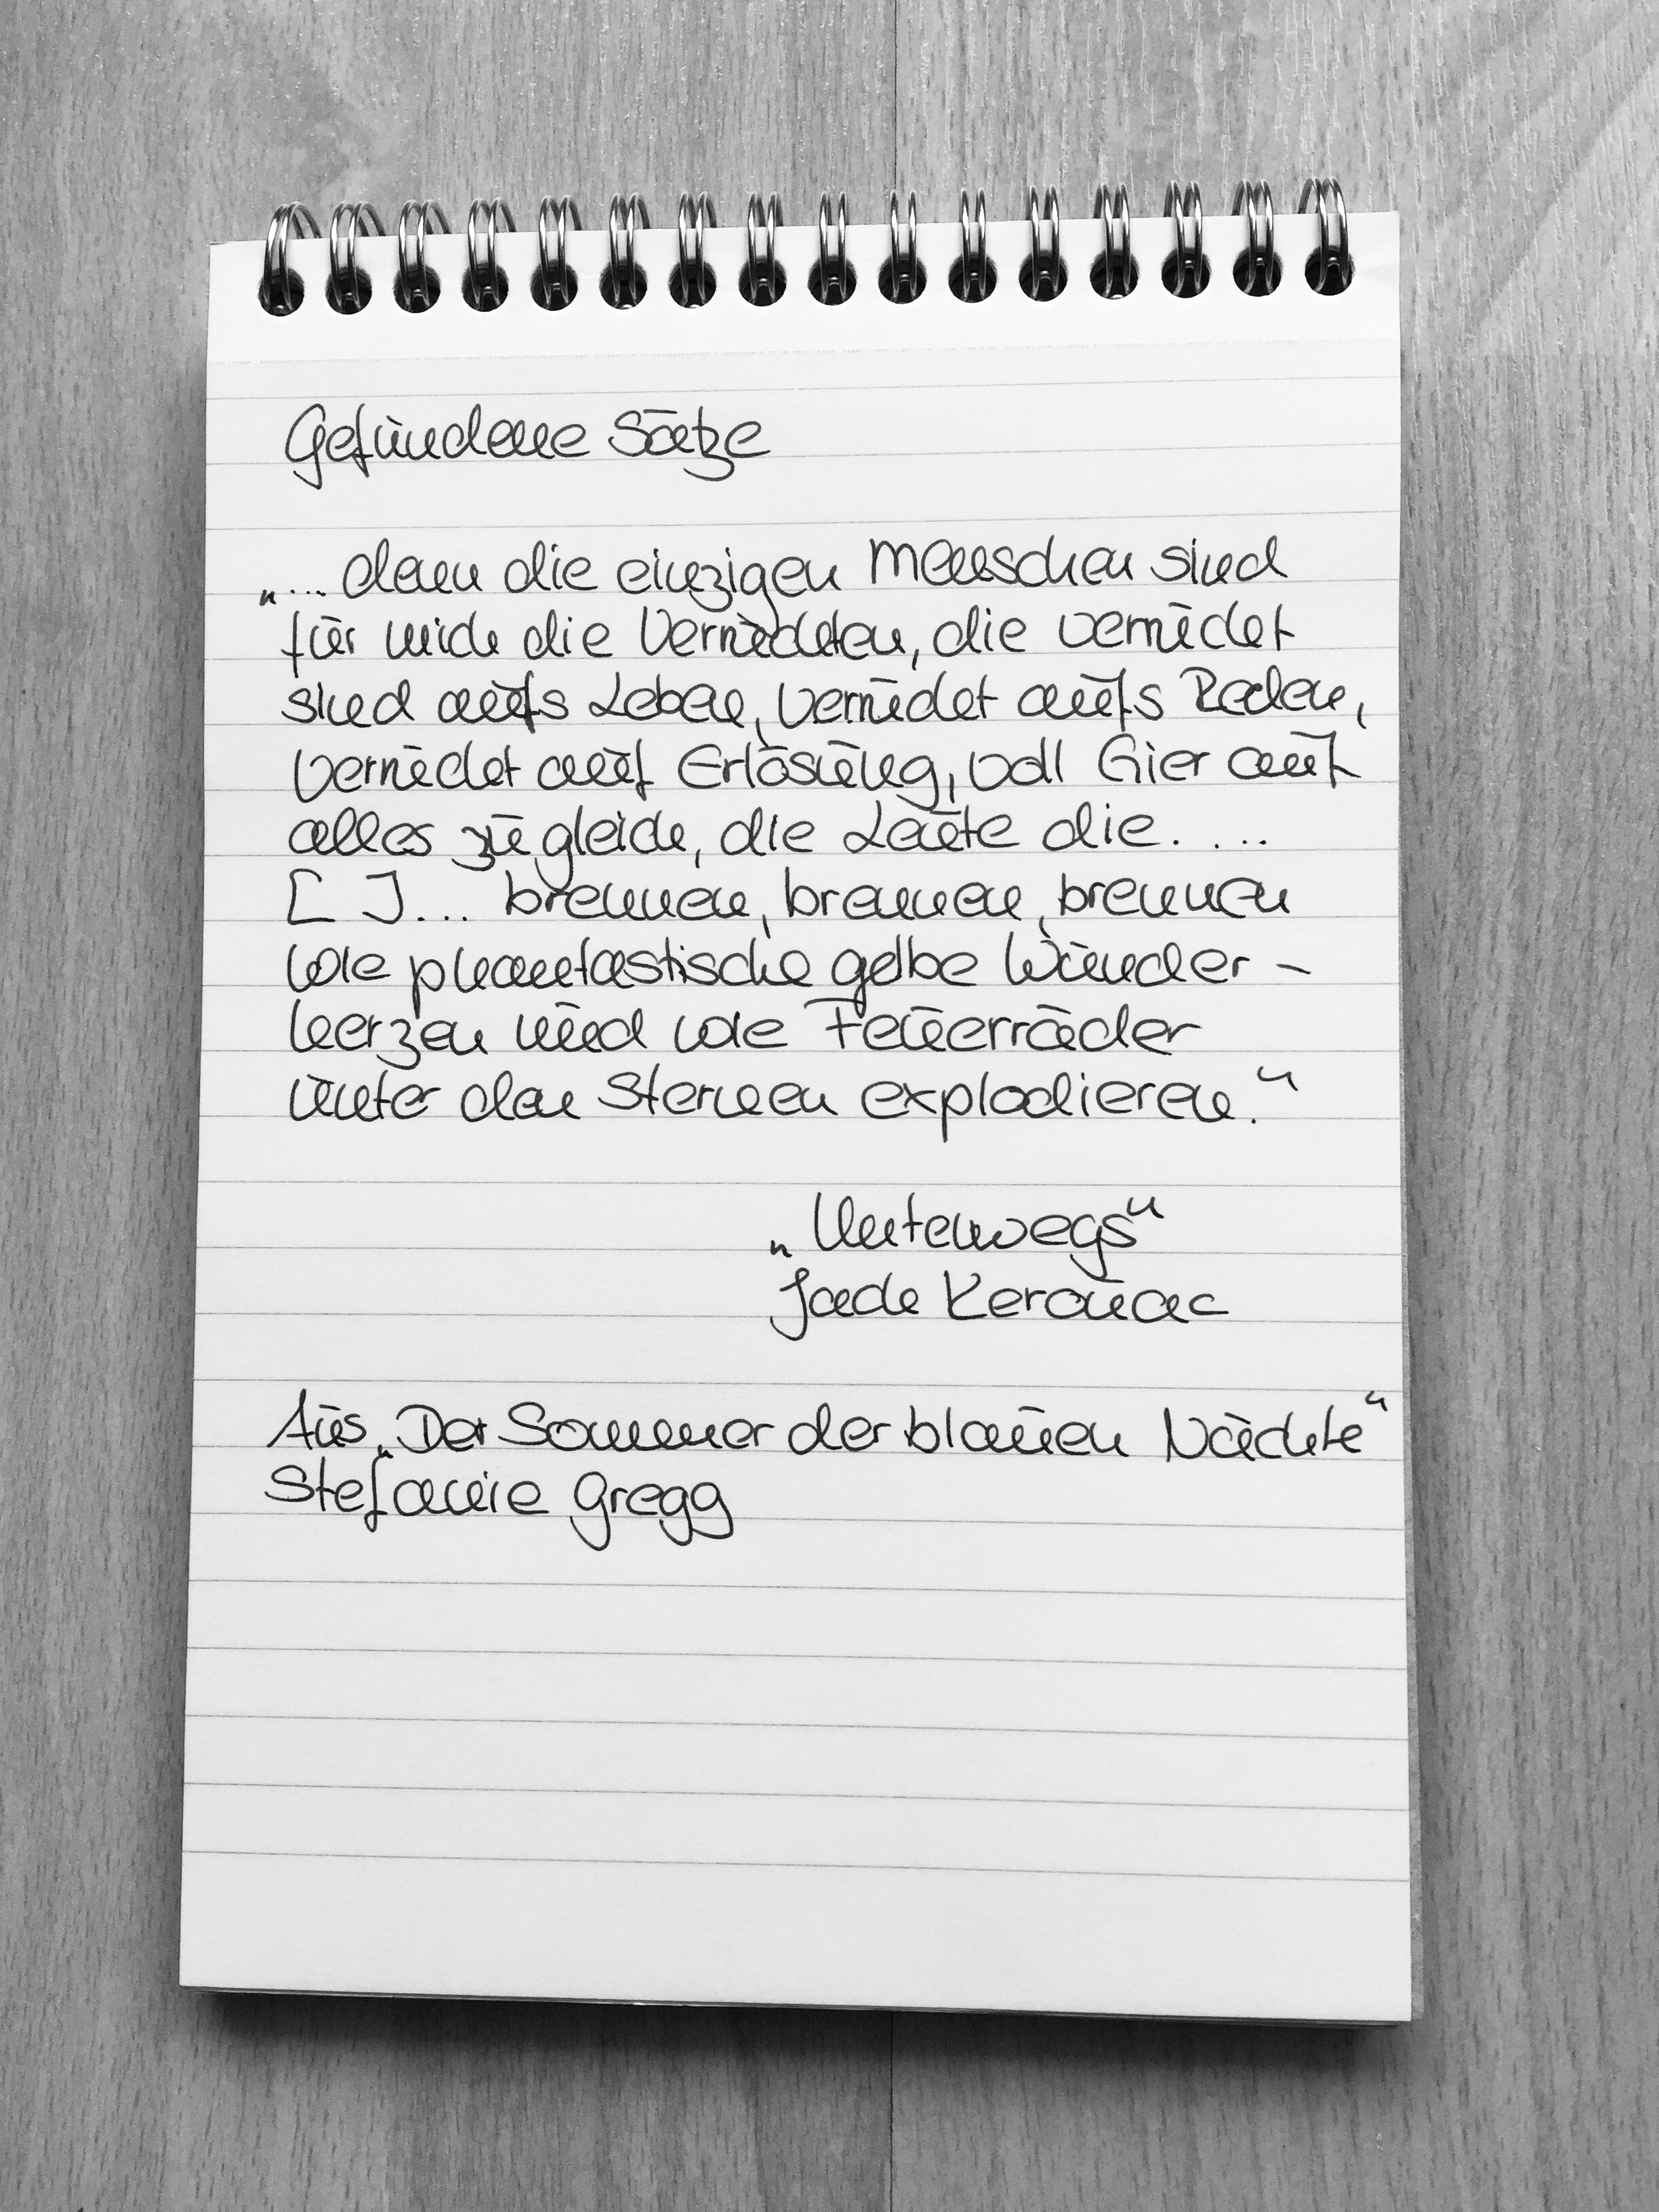 Gefundene Sätze
„... denn die einzigen Menschen sind
für mich die Verrückten, die verrückt
sind aufs Leben, verrückt aufs Reden,
verrückt auf Erlösung, voll Gier auf
alles zugleich, die Leute die....
[ ]... brennen, brennen, brennen
wie phantastische gelbe Wunder-
kerzen und wie Feuerräder
unter den Sternen explodieren."
„Unterwegs"
Jack Kerouac
Aus „Der Sommer der blauen Nächte"
Stefanie Gregg